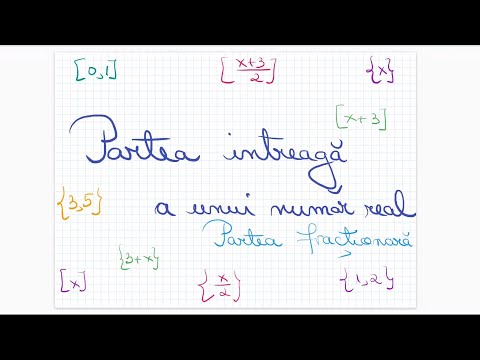 [0,1] [x+3/2] {x}
[x+3]
Partea intreagă
{3,5} a unui numar real
Partea fracționară
{3+x}
[x] {x/2} {1,2}